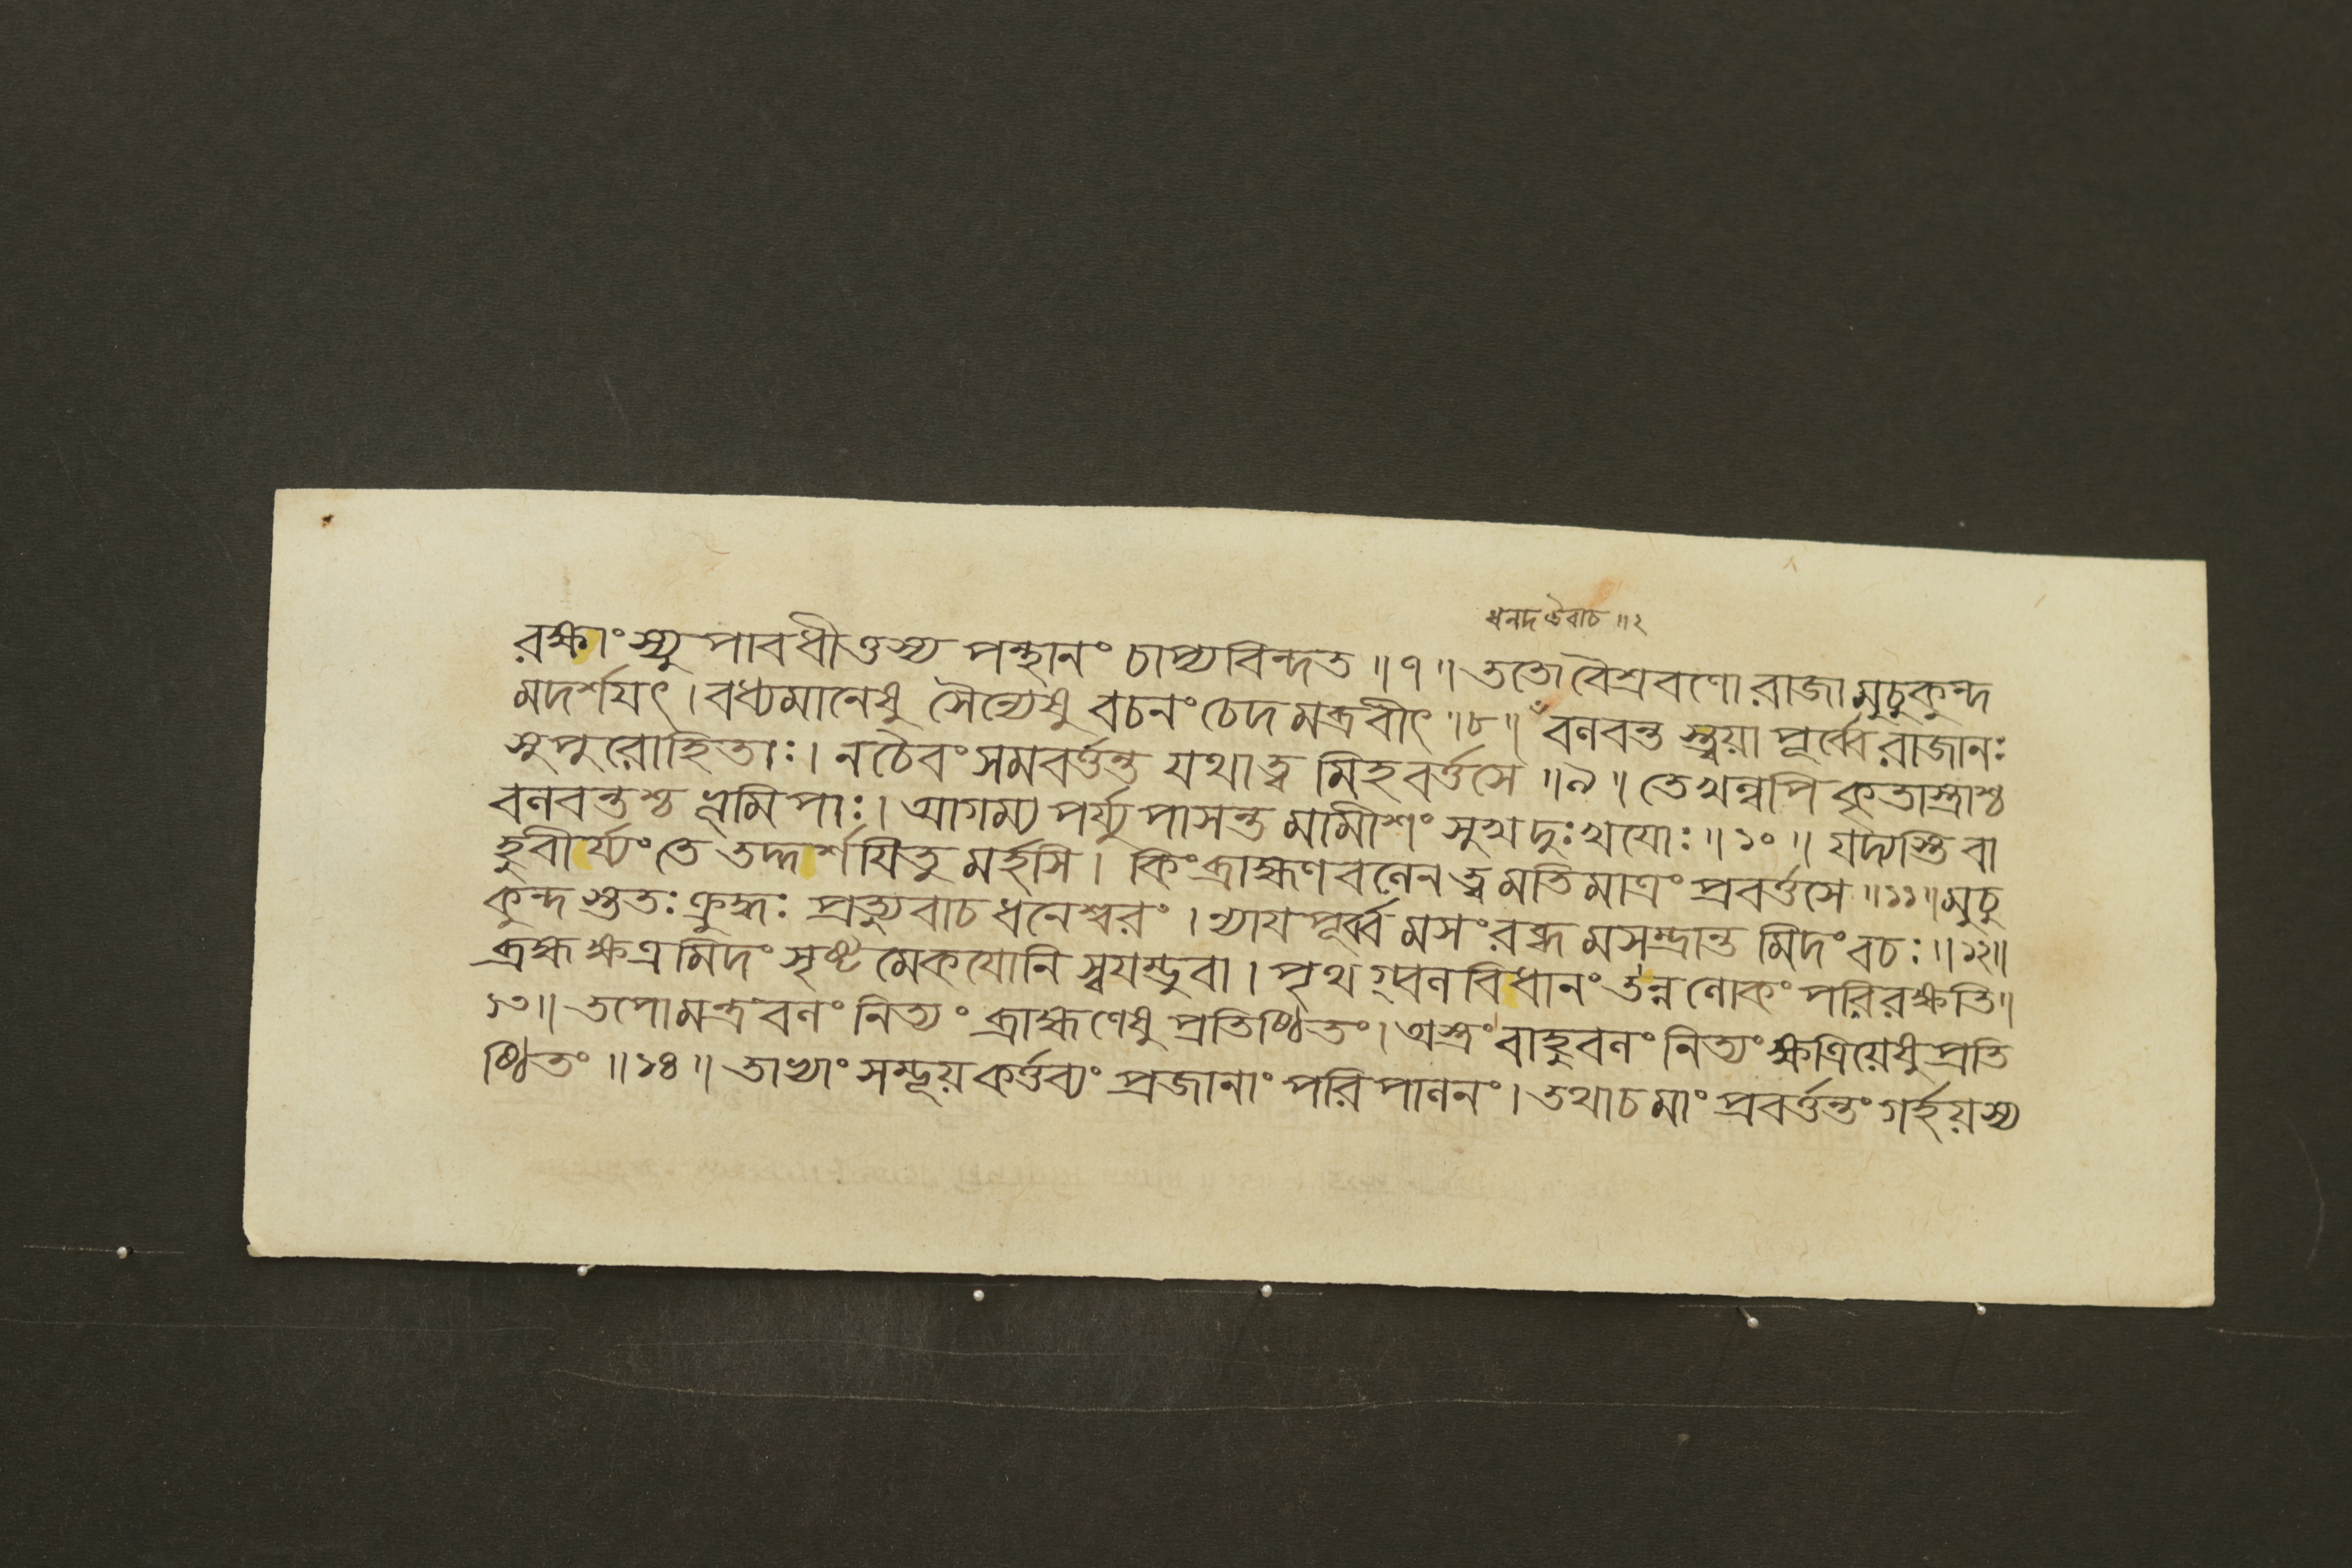 ধনদ উবাচ ॥ ২
রক্ষাংস্যুপাবধীত্তস্য পন্থানং চাপ্যবিন্দত ॥ ৭ ॥ ততো বৈশ্রবণো রাজা মুচুকুন্দ
মদর্শযৎ । বধ্যমানেষু সৈন্যেষু বচনং চেদমব্রবীৎ ॥ ৮ ॥ বলবন্তস্ত্বয়া পূর্ব্বে রাজানঃ
সুপুরোহিতাঃ । ন চৈবং সমবর্ত্তন্ত যথা ত্বমিহ বর্ত্তসে ॥ ৯ ॥ তে খল্বপি কৃতাস্ত্রাশ্চ
বলবন্তশ্চ ভূমিপাঃ । আগম্য পর্য্যুপাসন্ত মামীশং সুখদুঃখযোঃ ॥ ১০ ॥ যদ্যস্তি বা
হুবীর্য্যং তে তদ্দর্শযিতুমর্হসি । কিং ব্রাহ্মণবলেন ত্বমতিমাত্রং প্রবর্ত্তসে ॥ ১১ ॥ মুচু
কুন্দস্ততঃ ক্রুদ্ধঃ প্রত্যুবাচ ধনেশ্বরং । ন্যাযপূর্ব্বমসংরব্ধমসম্ভ্রান্তমিদং বচঃ ॥ ১২ ॥
ব্রহ্মক্ষত্রমিদং সৃষ্টমেকযোনি স্বযম্ভুবা । পৃথগ্বলবিধানং তন্ন লোকং পরিরক্ষতি ॥
১৩ ॥ তপোমন্ত্রবলং নিত্যং ব্রাহ্মণেষু প্রতিষ্ঠিতং । অস্ত্রং বাহুবলং নিত্যং ক্ষত্রিয়েষু প্রতি
ষ্ঠিতং ॥ ১৪ ॥ তাভ্যাং সম্ভূয় কর্ত্তব্যং প্রজানাং পরিপালনং । তথা চ মাং প্রবর্ত্তন্তং গর্হয়স্য